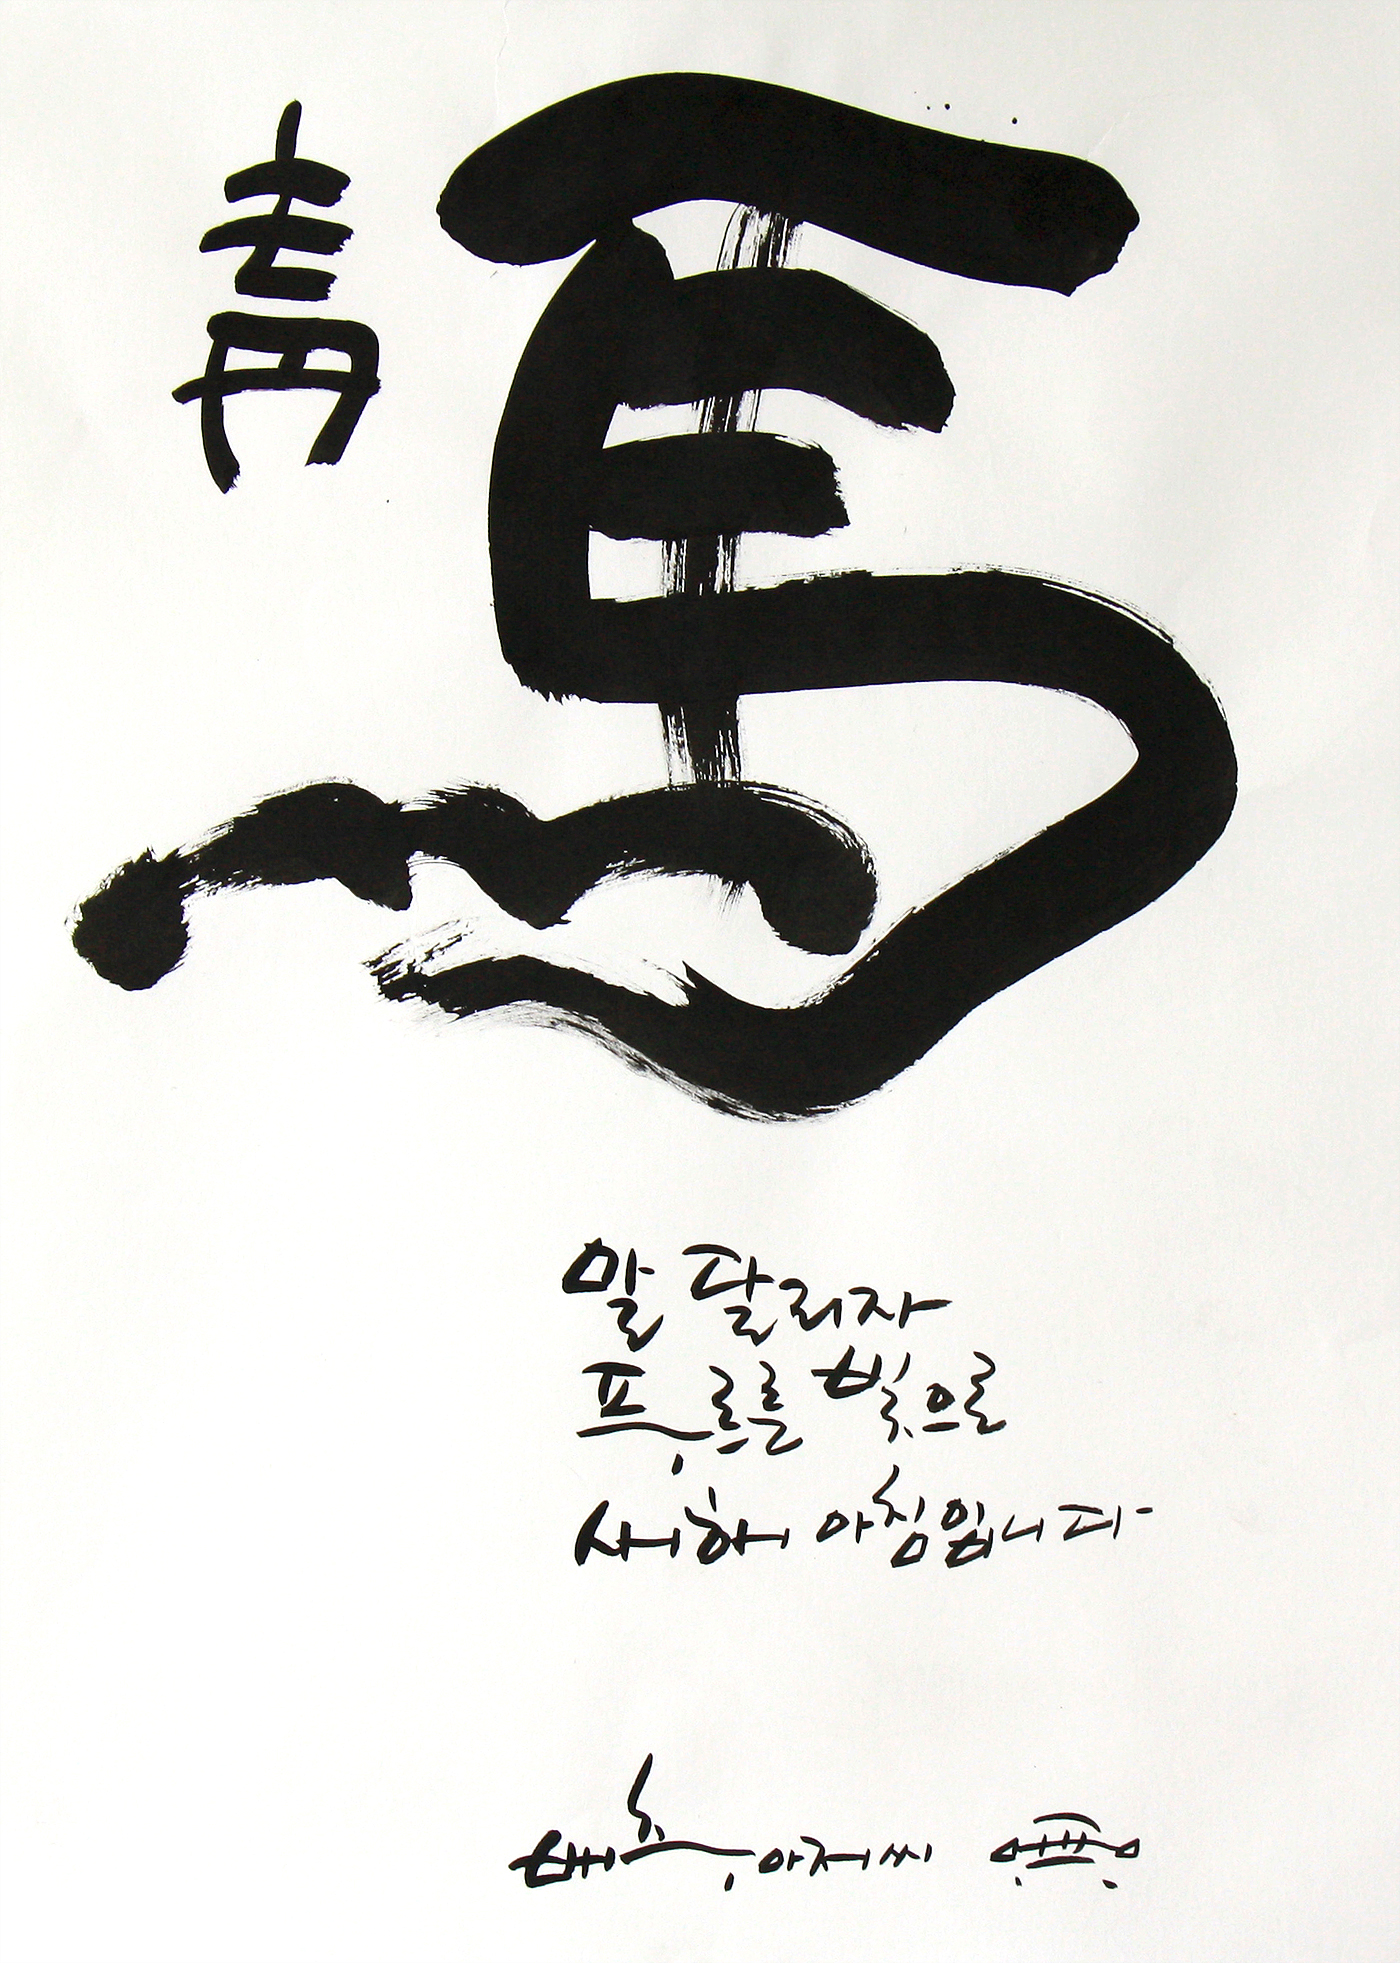 靑馬
말 달리자
푸르른 빛으로
새해 아침입니다
배추 아저씨